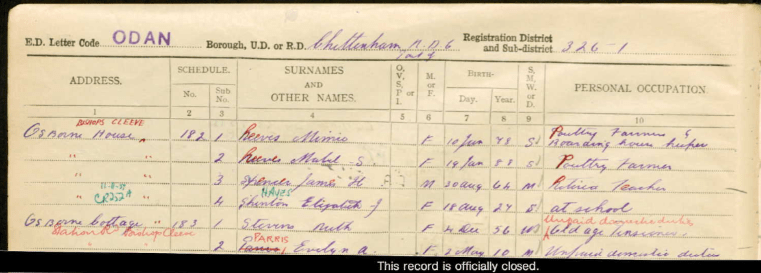 E.D. Letter Code ODAN Borough, U.D. or R.D. Cheltenham R.D.C Registration District and Sub-district 326-1
Part of
ADDRESS. SCHEDULE. No. Sub No. SURNAMES AND OTHER NAMES. O., V., S., P., or I. M. or F. BIRTH— Day. Year. S. M. W. or D. PERSONAL OCCUPATION.
1 2 3 4 5 6 7 8 9 10
BISHOPS CLEEVE
Osborne House " 182 1 Reeves Minnie F 10 Jun 78 S Poultry Farmer & Boarding house keeper
" " 2 Reeves Mabel S. F 19 Jan 88 S Poultry Farmer
" " 3 James H M 30 Aug 64 M Teacher
CR252A HAYES
" " 4 Shinton Elizabeth J F 18 Aug 27 S at school
Osborne Cottage " 183 1 Stevens Ruth F 4 Dec 56 W Old age Pensioner
Unpaid domestic duties
Station Rd Bishops Cleeve
PARRIS
" 2 Evelyn A. F 3 May 10 M Unpaid domestic duties
This record is officially closed.